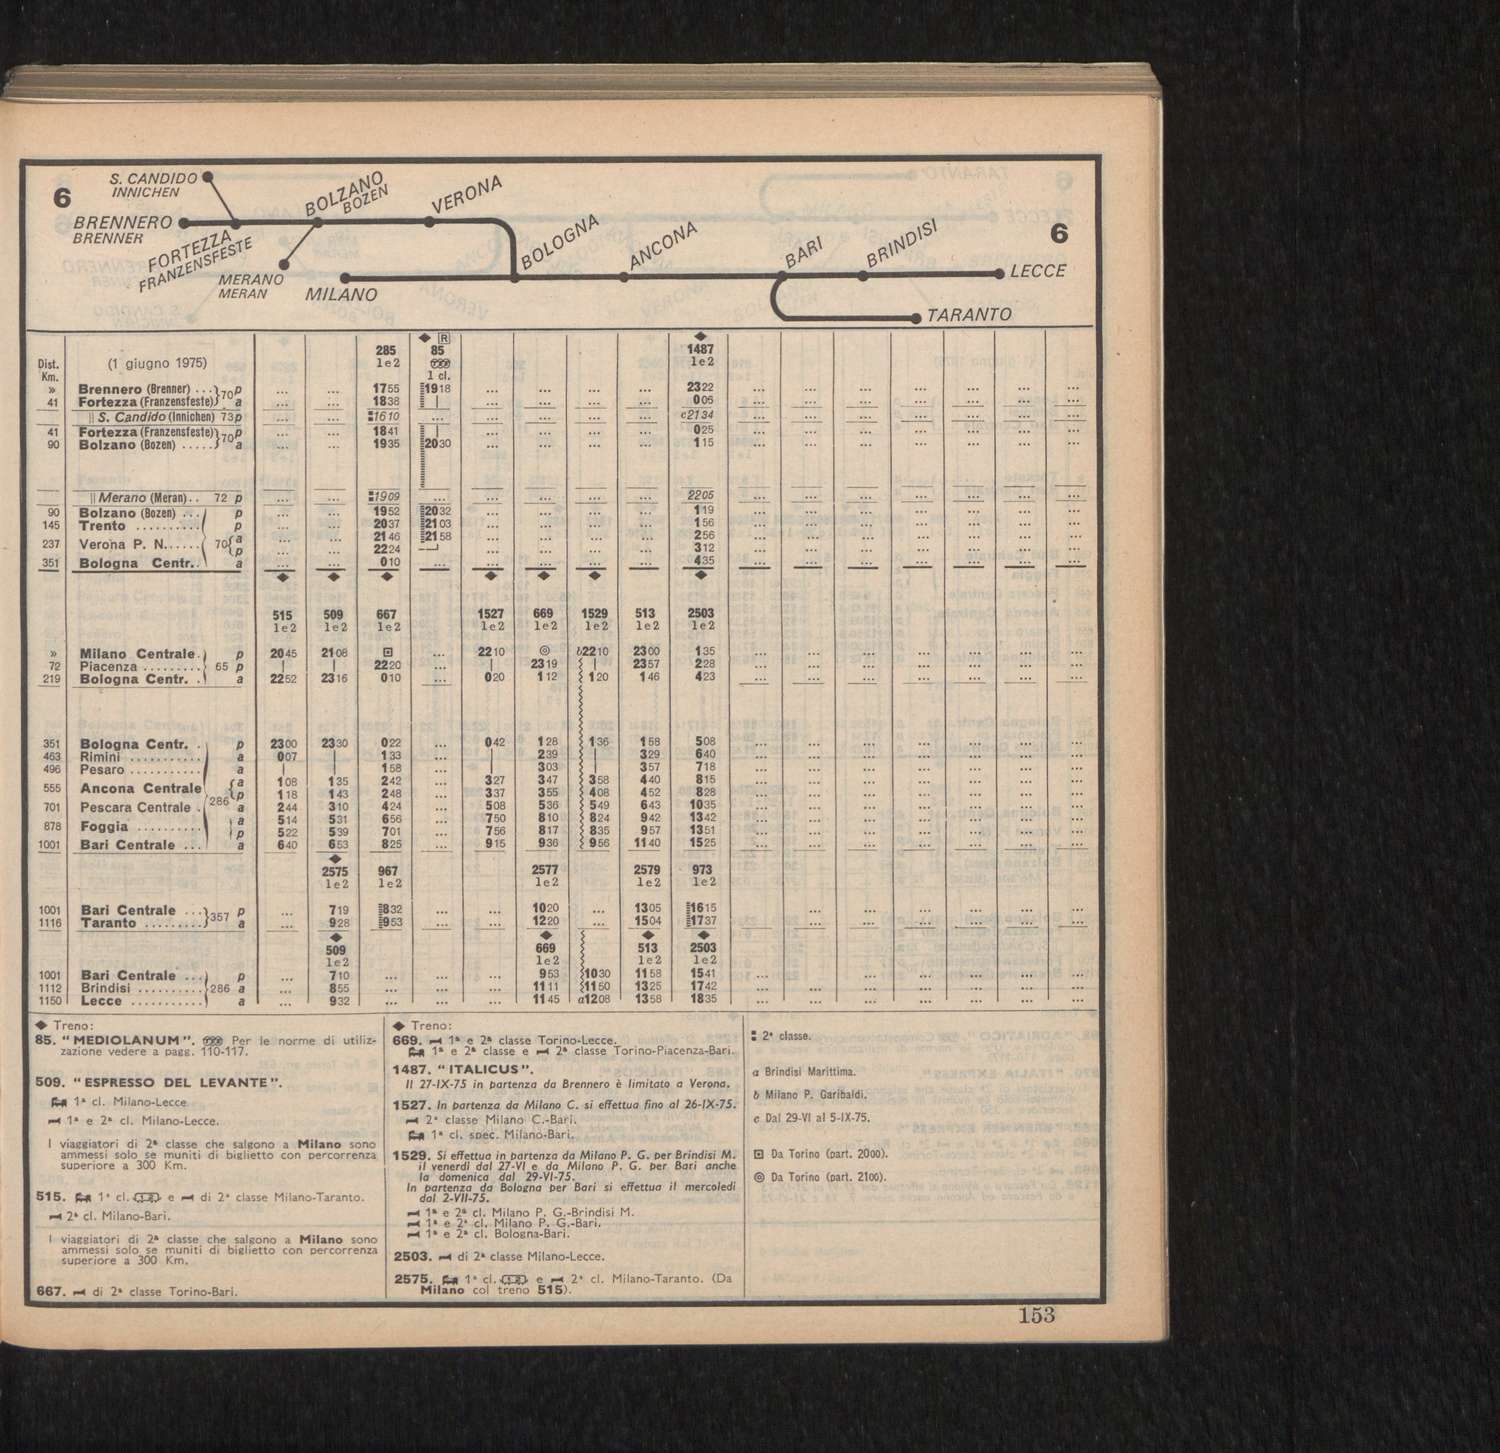 6
S. CANDIDO
INNICHEN
BRENNERO
BRENNER
FORTEZZA
FRANZENSFESTE
BOLZANO
BOZEN
MERANO
MERAN
VERONA
MILANO
BOLOGNA
ANCONA
BARI
BRINDISI
LECCE
TARANTO
6
285 85 1487
Dist. Km. (1 giugno 1975) 1e2 1 cl. 1e2
» Brennero (Brenner) ... 70 p ... ... 1755 1918 ... ... ... ... 2322 ... ... ... ... ... ... ...
41 Fortezza (Franzensfeste) a ... ... 1838 | ... ... ... ... 006 ... ... ... ... ... ... ...
|| S. Candido (Innichen) 73 p ... ... 1610 ... ... ... ... ... c2134 ... ... ... ... ... ... ...
41 Fortezza (Franzensfeste) 70 p ... ... 1841 | ... ... ... ... 025 ... ... ... ... ... ... ...
90 Bolzano (Bozen) ..... a ... ... 1935 2030 ... ... ... ... 115 ... ... ... ... ... ... ...
|| Merano (Meran) .. 72 p ... ... 1909 ... ... ... ... ... 2205 ... ... ... ... ... ... ...
90 Bolzano (Bozen) ... p ... ... 1952 2032 ... ... ... ... 119 ... ... ... ... ... ... ...
145 Trento .......... p ... ... 2037 2103 ... ... ... ... 156 ... ... ... ... ... ... ...
237 Verona P. N. ..... 70 a ... ... 2146 2158 ... ... ... ... 256 ... ... ... ... ... ... ...
p ... ... 2224 ... ... ... ... 312 ... ... ... ... ... ... ...
351 Bologna Centr. . a ... ... 010 ... ... ... ... ... 435 ... ... ... ... ... ... ...
515 509 667 1527 669 1529 513 2503
1e2 1e2 1e2 1e2 1e2 1e2 1e2 1e2
» Milano Centrale . p 2045 2108 ... 2210 b2210 2300 135 ... ... ... ... ... ... ...
72 Piacenza ......... 65 p | | 2220 ... | 2319 | 2357 228 ... ... ... ... ... ... ...
219 Bologna Centr. . a 2252 2316 010 ... 020 112 120 146 423 ... ... ... ... ... ... ...
351 Bologna Centr. . p 2300 2330 022 ... 042 128 136 158 508 ... ... ... ... ... ... ...
463 Rimini .......... a 007 | 133 ... | 239 | 329 640 ... ... ... ... ... ... ...
496 Pesaro .......... a | | 158 ... | 303 | 357 718 ... ... ... ... ... ... ...
555 Ancona Centrale a 108 135 242 ... 327 347 358 440 815 ... ... ... ... ... ... ...
286 p 118 143 248 ... 337 355 408 452 828 ... ... ... ... ... ... ...
701 Pescara Centrale . a 244 310 424 ... 508 536 549 643 1035 ... ... ... ... ... ... ...
878 Foggia .......... a 514 531 656 ... 750 810 824 942 1342 ... ... ... ... ... ... ...
p 522 539 701 ... 756 817 835 957 1351 ... ... ... ... ... ... ...
1001 Bari Centrale ... a 640 653 825 ... 915 936 956 1140 1525 ... ... ... ... ... ... ...
2575 967 2577 2579 973
1e2 1e2 1e2 1e2 1e2
1001 Bari Centrale ... 357 p ... 719 832 ... ... 1020 ... 1305 1615 ... ... ... ... ...
1116 Taranto ......... a ... 928 953 ... ... 1220 ... 1504 1737 ... ... ... ... ...
509 669 513 2503
1e2 1e2 1e2 1e2
1001 Bari Centrale ... p ... 710 ... ... ... 953 1030 1158 1541 ... ... ... ... ... ...
1112 Brindisi .......... 286 a ... 855 ... ... ... 1111 1150 1325 1742 ... ... ... ... ... ...
1150 Lecce .......... a ... 932 ... ... ... 1145 a1208 1358 1835 ... ... ... ... ... ...
◆ Treno:
85. "MEDIOLANUM". Per le norme di utiliz-
zazione vedere a pagg. 110-117.
509. "ESPRESSO DEL LEVANTE".
1ª cl. Milano-Lecce
1ª e 2ª cl. Milano-Lecce.
I viaggiatori di 2ª classe che salgono a Milano sono
ammessi solo se muniti di biglietto con percorrenza
superiore a 300 Km.
515. 1ª cl. e di 2ª classe Milano-Taranto.
2ª cl. Milano-Bari.
I viaggiatori di 2ª classe che salgono a Milano sono
ammessi solo se muniti di biglietto con percorrenza
superiore a 300 Km.
667. di 2ª classe Torino-Bari.
◆ Treno:
669. 1ª e 2ª classe Torino-Lecce.
1ª e 2ª classe e 2ª classe Torino-Piacenza-Bari.
1487. "ITALICUS".
Il 27-IX-75 in partenza da Brennero è limitato a Verona.
1527. In partenza da Milano C. si effettua fino al 26-IX-75.
2ª classe Milano C.-Bari.
1ª cl. spec. Milano-Bari.
1529. Si effettua in partenza da Milano P. G. per Brindisi M.
il venerdì dal 27-VI e da Milano P. G. per Bari anche
la domenica dal 29-VI-75.
In partenza da Bologna per Bari si effettua il mercoledì
dal 2-VII-75.
1ª e 2ª cl. Milano P. G.-Brindisi M.
1ª e 2ª cl. Milano P. G.-Bari.
1ª e 2ª cl. Bologna-Bari.
2503. di 2ª classe Milano-Lecce.
2575. 1ª cl. e 2ª cl. Milano-Taranto. (Da
Milano col treno 515).
2ª classe.
a Brindisi Marittima.
b Milano P. Garibaldi.
c Dal 29-VI al 5-IX-75.
Da Torino (part. 2000).
Da Torino (part. 2100).
153